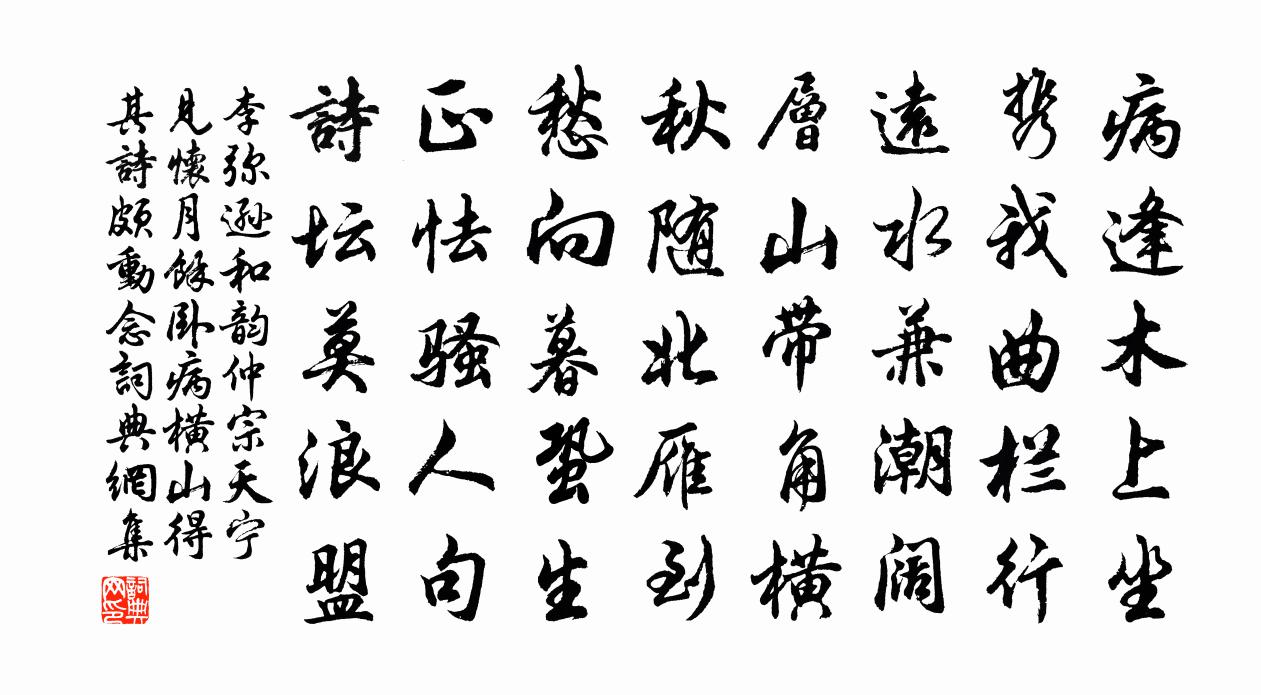 病逢木上坐
携我曲栏行
遠水兼潮闊
層山帶角横
秋随北雁到
愁向暮蛩生
正怯骚人句
詩坛莫浪盟
李弥遜和韵仲宗天宁
見懷月餘卧病横山得
其詩頗動念詞典網集
詞典
网印